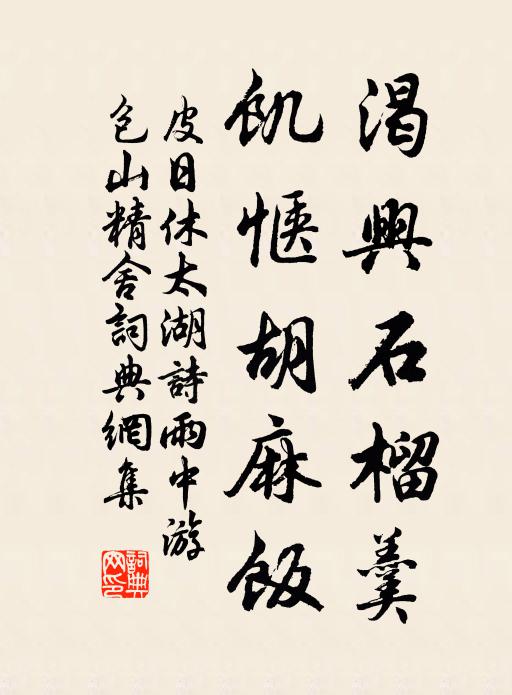 渴興石榴羹
飢愜胡麻飯
皮日休太湖詩雨中游
包山精舍詞典網集
詞典網印